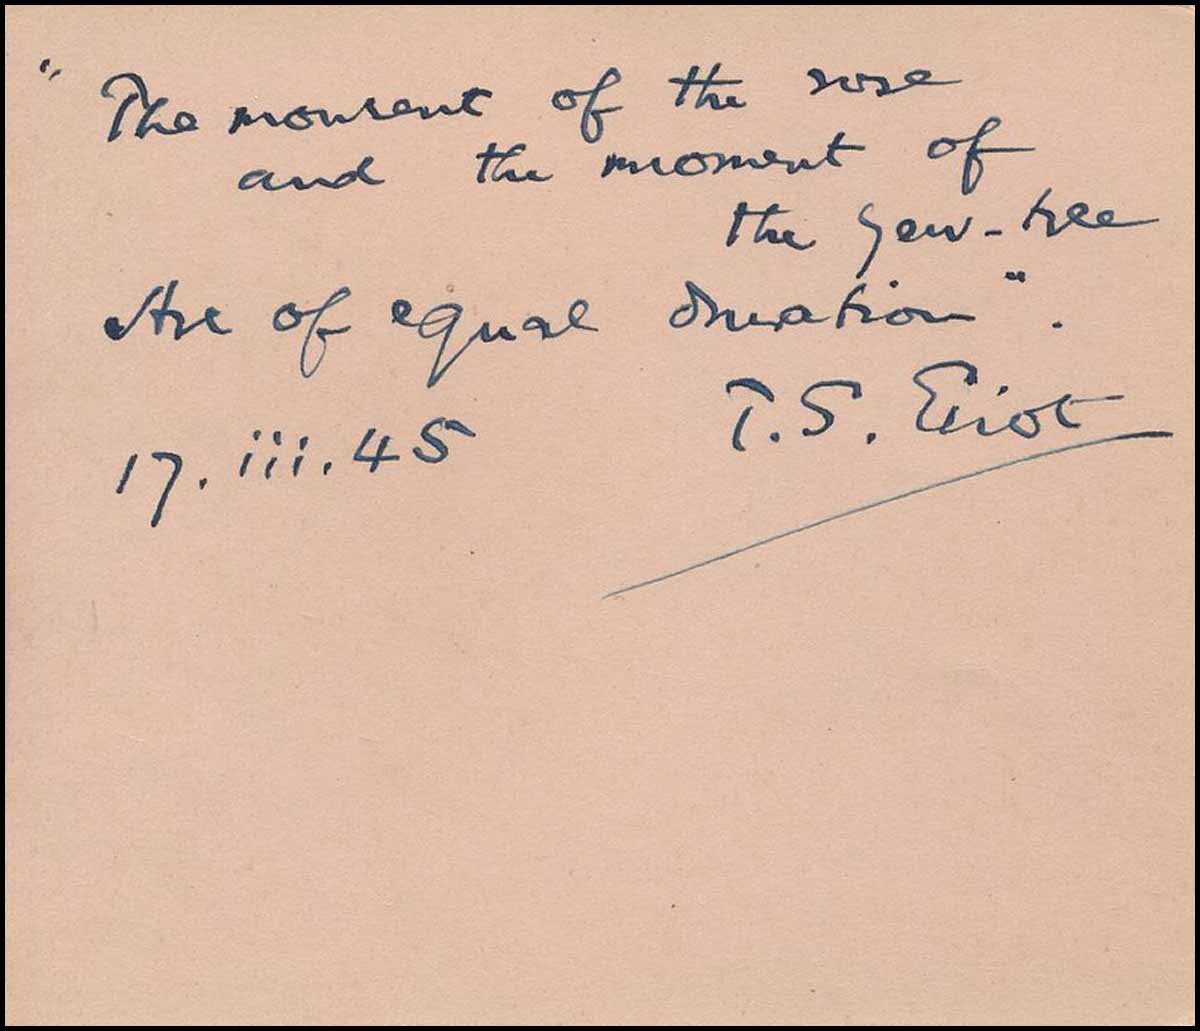 "The moment of the rose
and the moment of
the yew-tree
Are of equal duration".
T. S. Eliot
17.iii.45